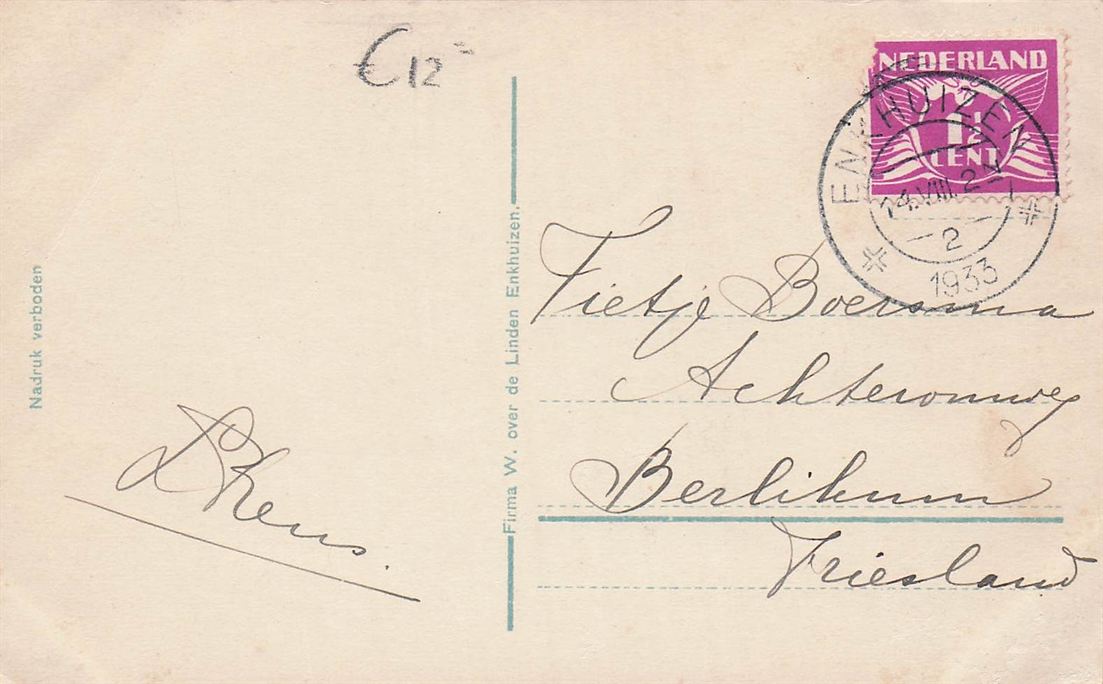 €12-
NEDERLAND
1½
CENT
ENKHUIZEN
14.VIII. 2
2
1933
Nadruk verboden
Firma W. over de Linden Enkhuizen.
Fietje Boersma
Achteromweg
Berlikum
Friesland